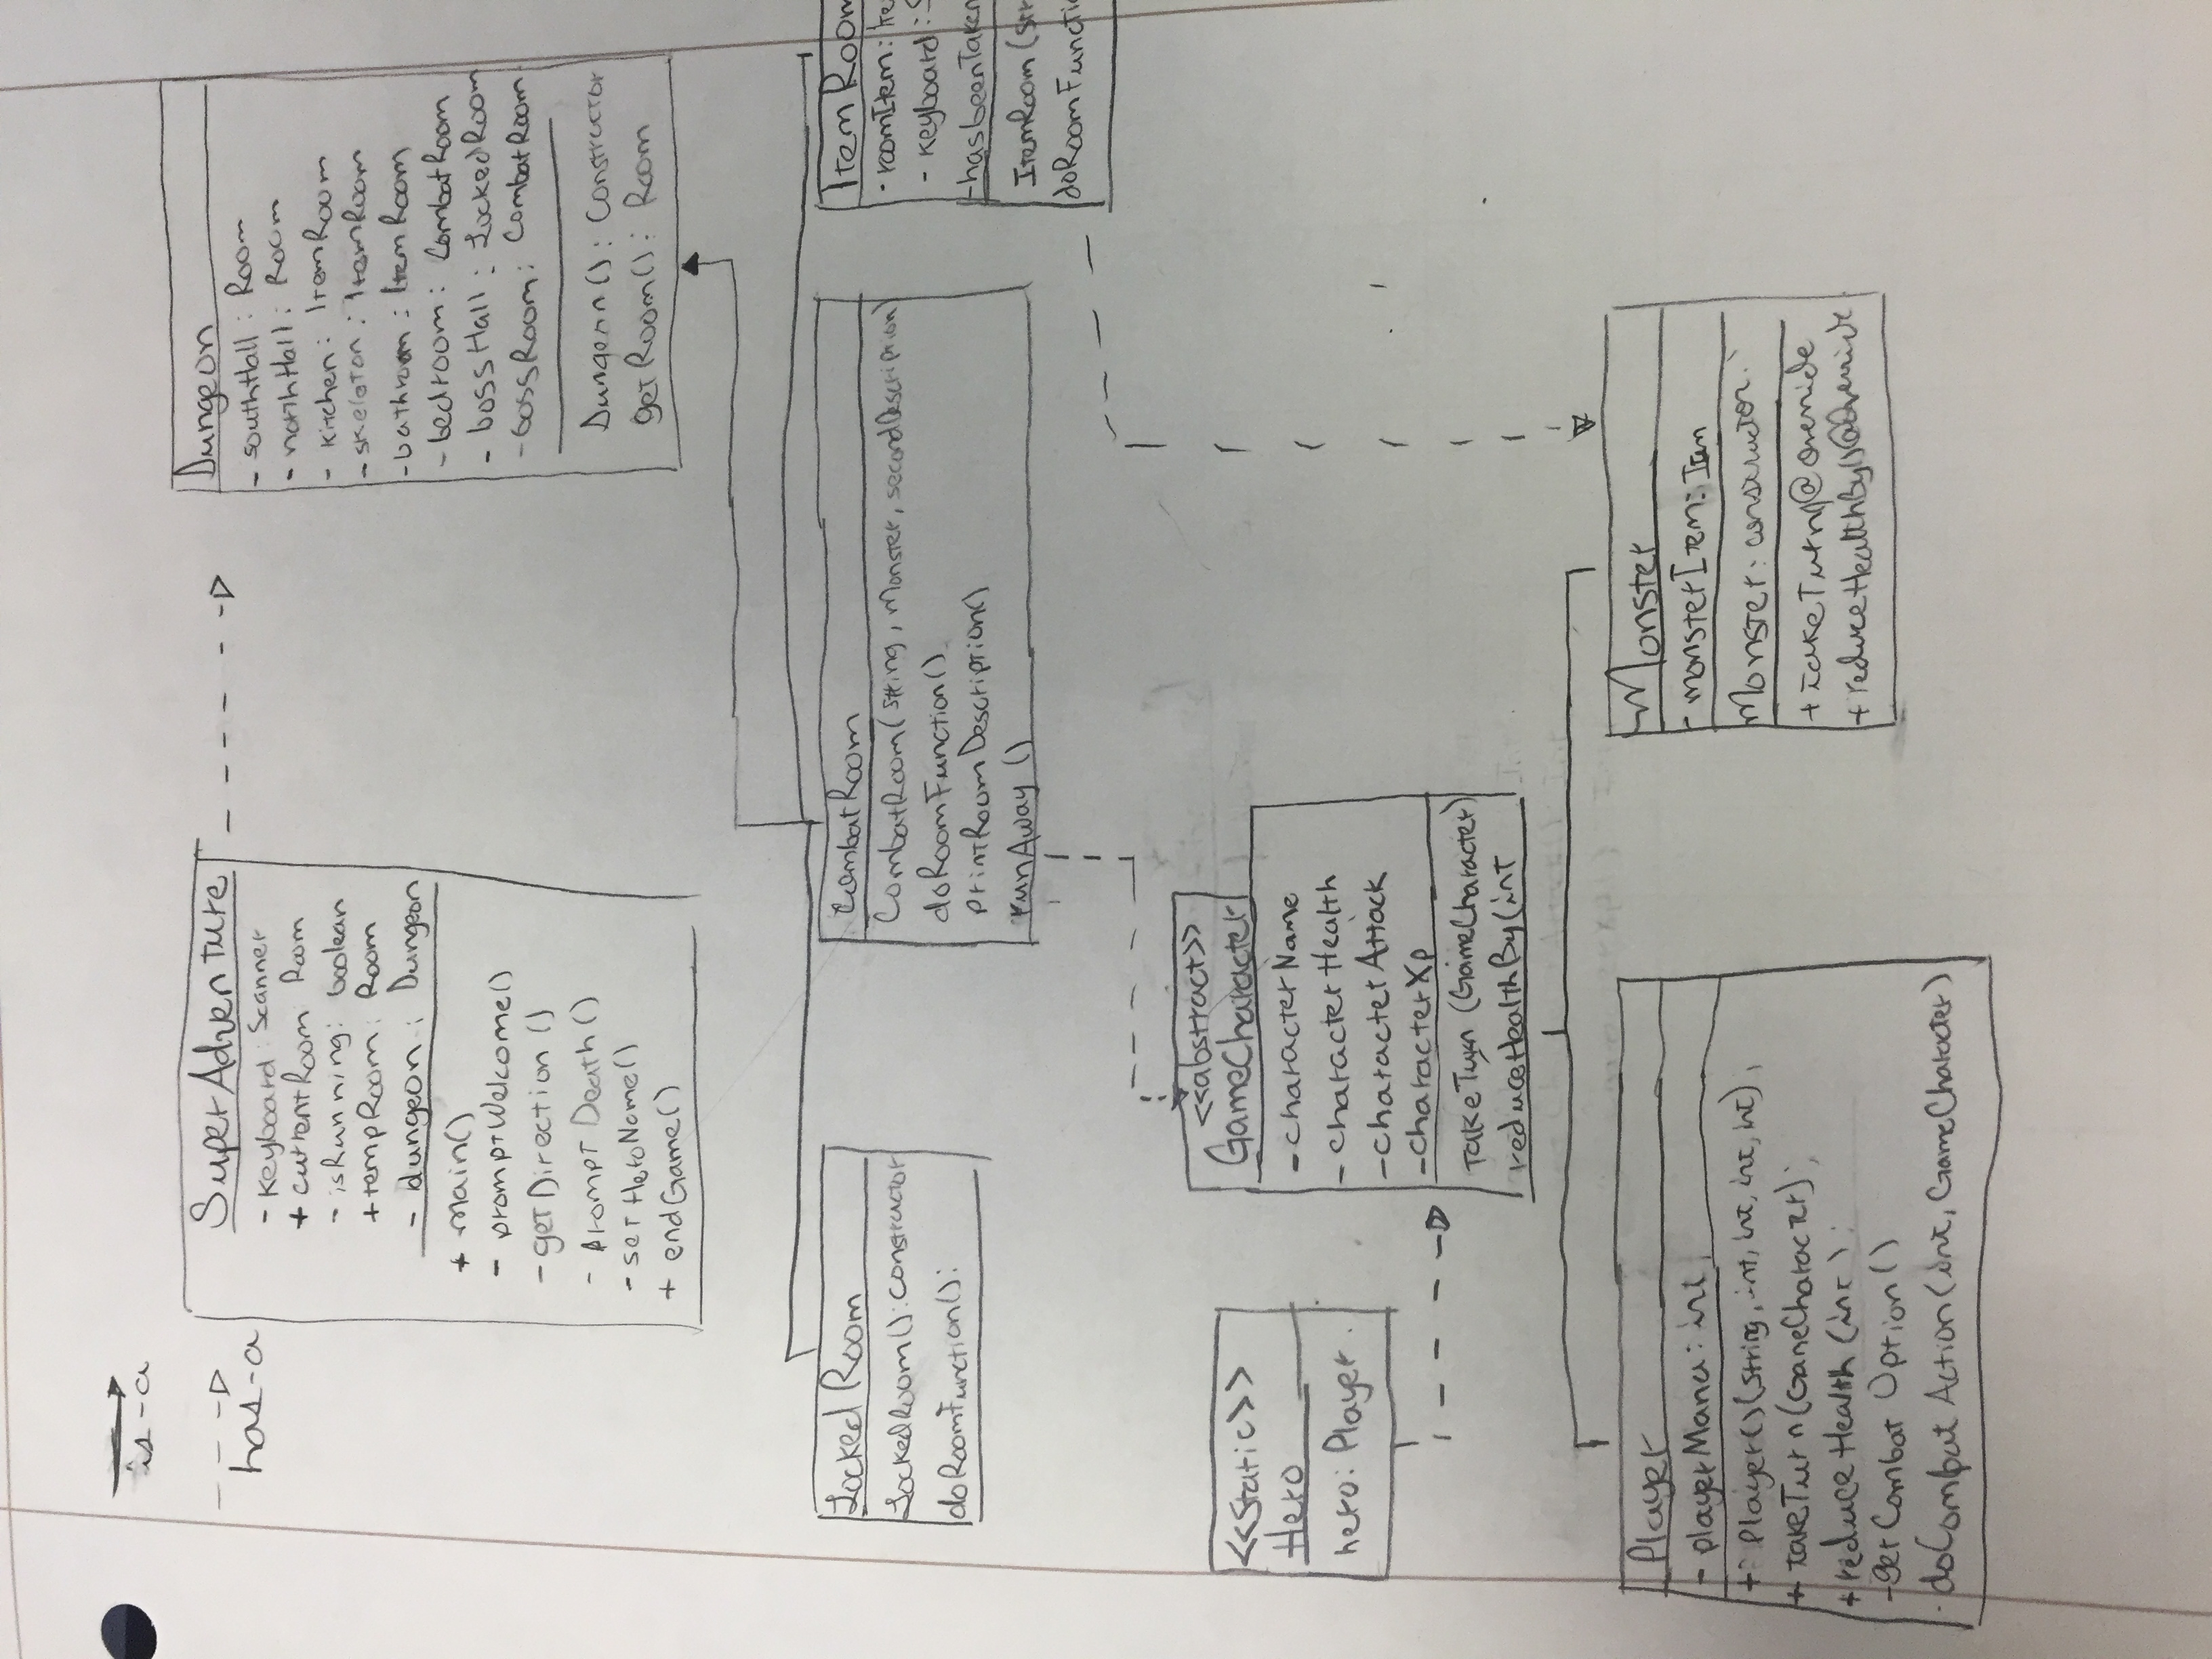 is-a
has-a
SuperAdventure
- Keyboard: Scanner
+ currentRoom Room
- isRunning: boolean
+ tempRoom: Room
- dungeon: Dungeon
+ main()
- promptWelcome()
- getDirection()
- promptDeath()
- setHeroName()
+ endGame()
Dungeon
- southHall: Room
- northHall: Room
- kitchen: ItemRoom
- skeleton: ItemRoom
- bathroom: ItemRoom
- bedroom: CombatRoom
- bossHall: LockedRoom
- bossRoom: CombatRoom
Dungeon(): Constructor
getRoom(): Room
Locked Room
LockedRoom(): Constructor
doRoomFunction():
CombatRoom
CombatRoom(String, Monster, secondDescription)
doRoomFunction()
printRoomDescription()
runAway()
ItemRoom
- roomItem: Ite
- keyboard: S
- hasbeenTaken
ItemRoom(Str
doRoomFuncti
<<abstract>>
GameCharacter
- characterName
- characterHealth
- characterAttack
- characterXp
takeTurn (GameCharacter)
reduceHealthBy(int
<<Static>>
Hero
hero: Player.
Player
- playerMana: int
+ Player()(String, int, int, int, int);
+ takeTurn(GameCharacter);
+ reduceHealth(int);
- getCombatOption()
- doCombatAction(int, GameCharacter)
Monster
- monsterItem: Item
Monster: constructor.
+ takeTurn()@override
+ reduceHealthBy()@Override